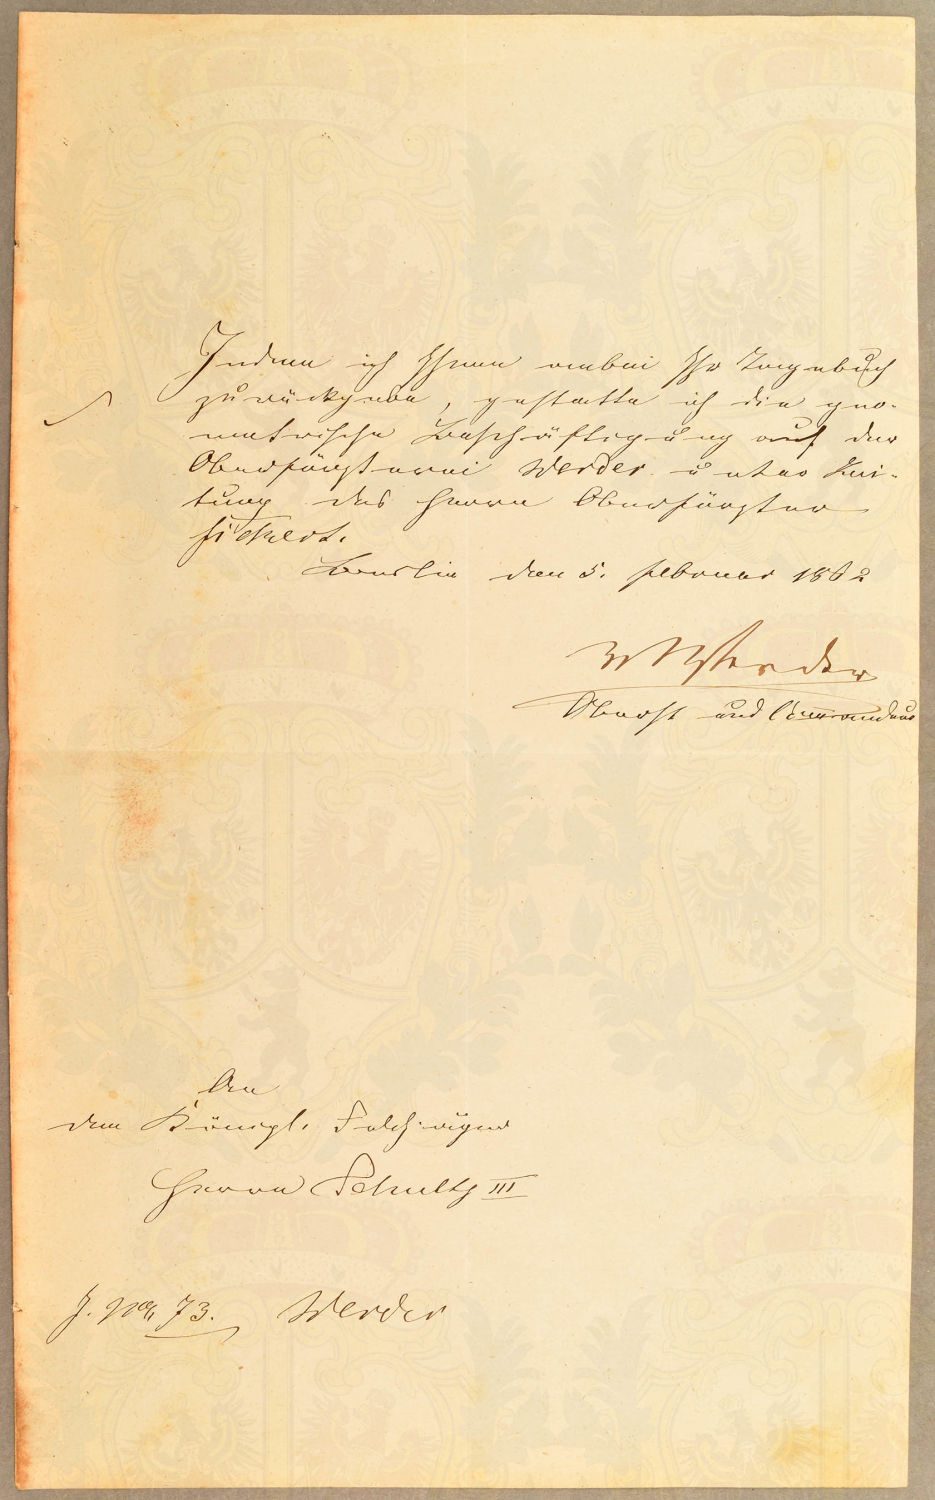 Indem ich Ihnen anbei Ihr Tagebuch
zurückgebe, gestatte ich die geo-
metrische Beschäftigung auf der
Oberförsterei Werder unter Lei-
tung des Herrn Oberförster
Fickert.
Berlin den 5. Februar 1862
v Werder
Oberst und Commandeur
An
den Königl. Feldjäger
Herrn Schultz III
J. No. 73. Werder